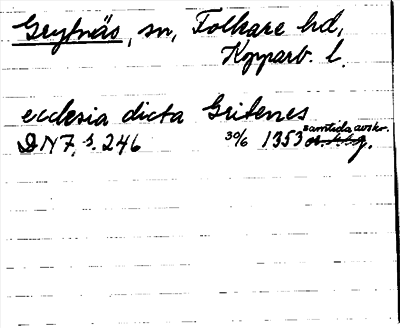 Grytnäs, sn, Folkare hd,
Kopparb. l.
ecclesia dicta Gritenes
DN 7, s. 246 30/6 1353 samtida avskr.